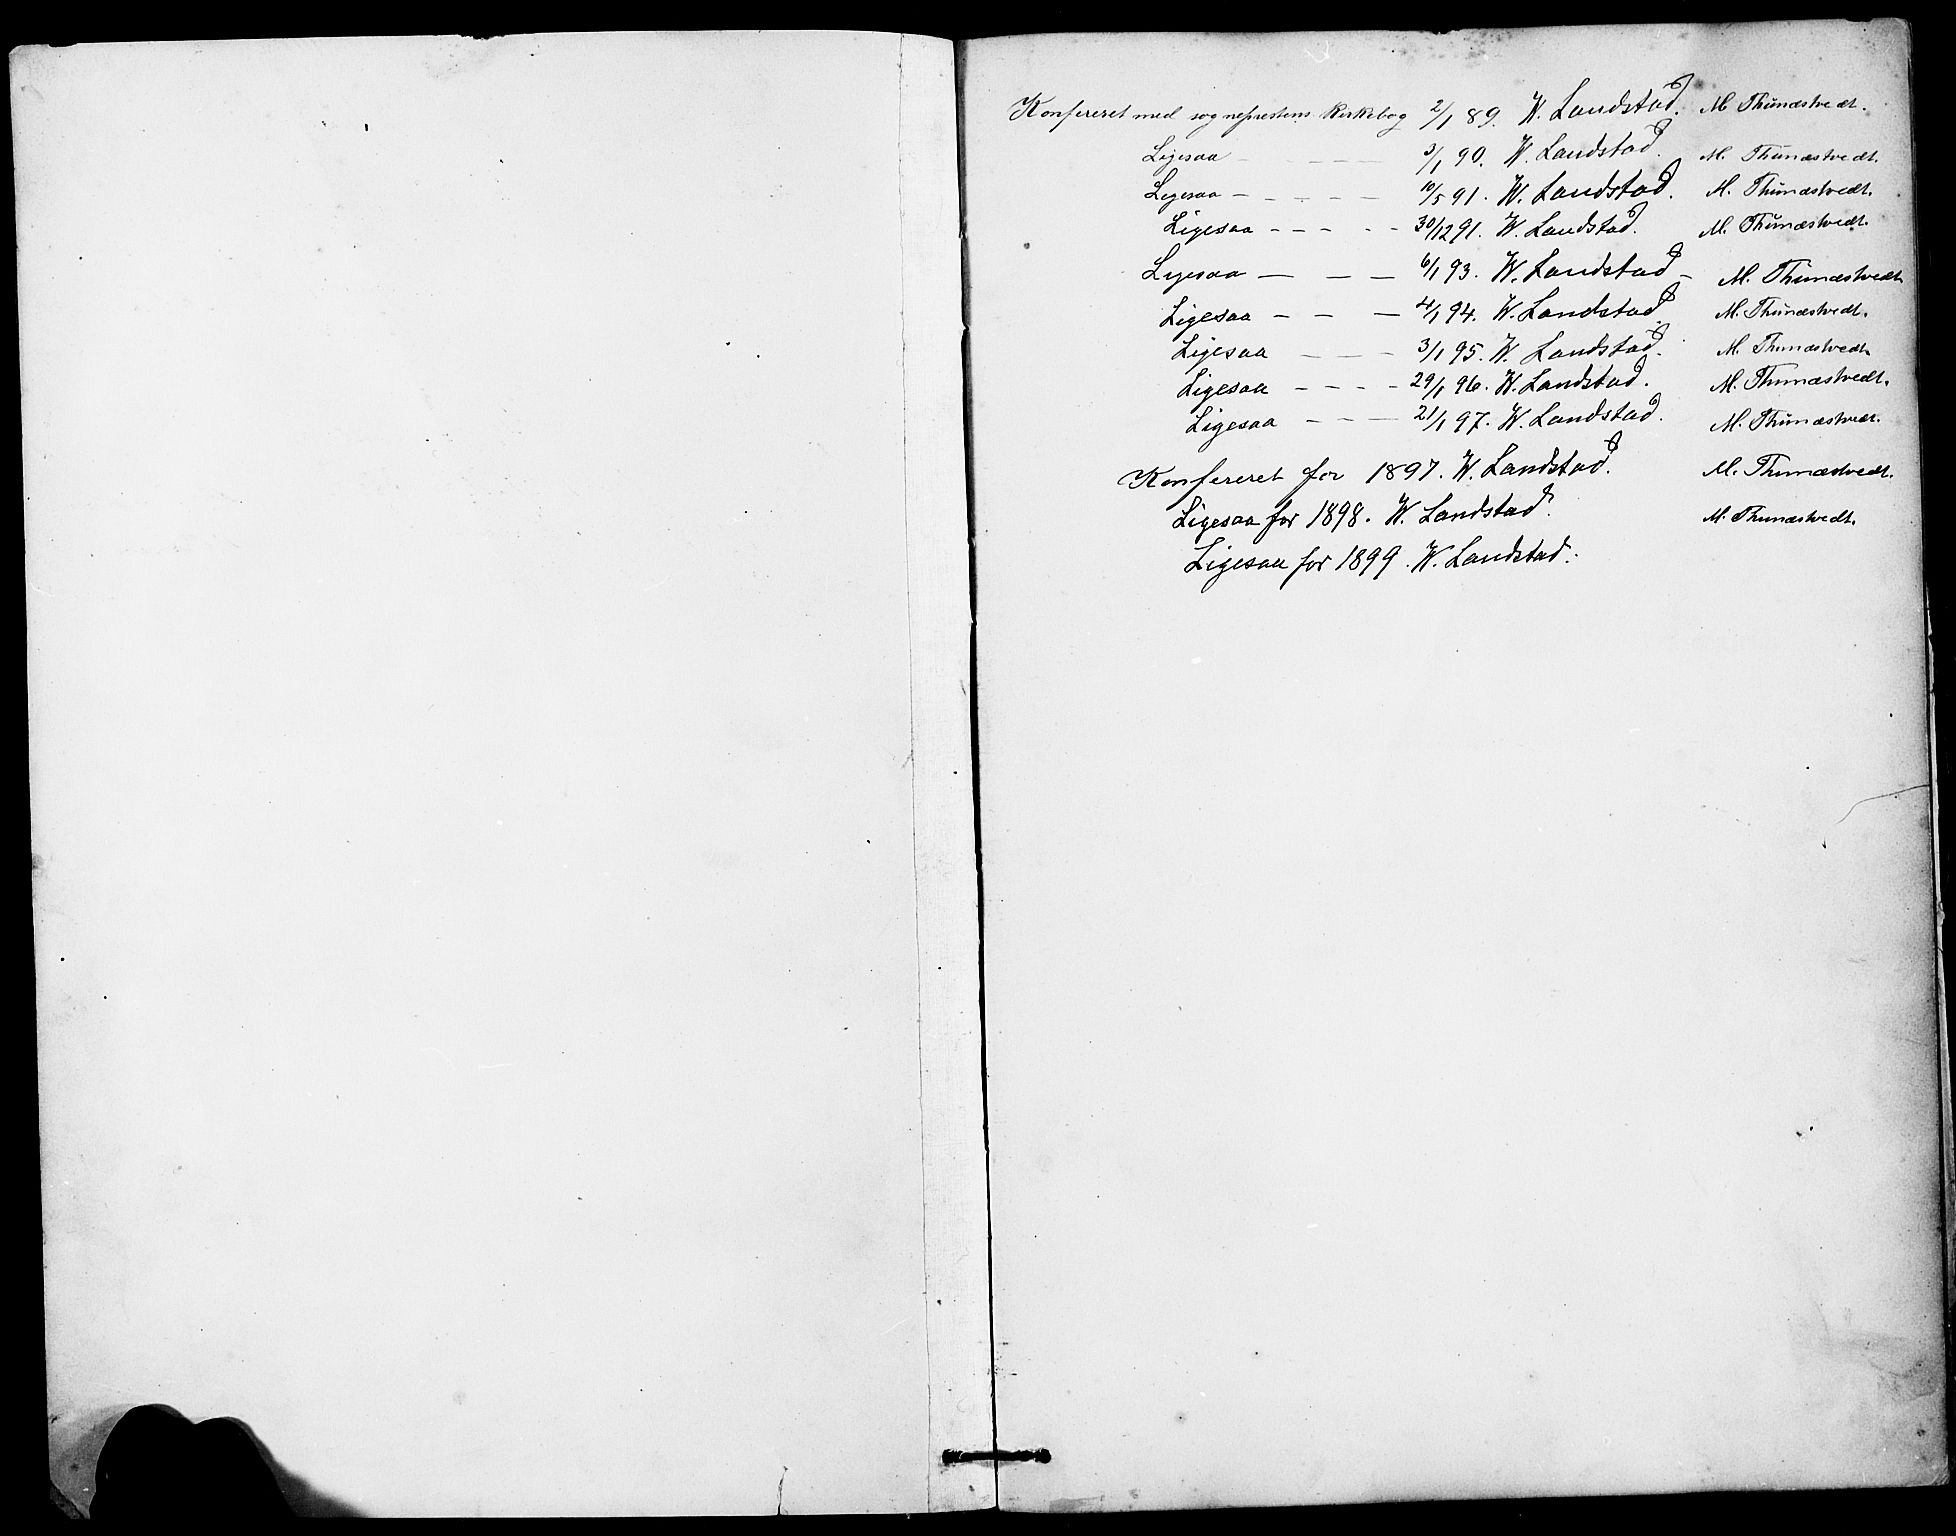 Konfereret med sogneprestens Kirkebog 2/1 89. W. Landstad. M. Thunæstvedt.
Ligesaa - - - - - 3/1 90. W. Landstad. M. Thunæstvedt.
Ligesaa - - - - - - 10/5 91. W. Landstad. M. Thunæstvedt.
Ligesaa - - - - - 30/12 91. W. Landstad. M. Thunæstvedt.
Ligesaa — — — 6/1 93. W. Landstad - M. Thunæstvedt
Ligesaa - - — 4/1 94. W. Landstad. M. Thunæstvedt.
Ligesaa - - - 3/1 95. W. Landstad. M. Thunæstvedt
Ligesaa - - - - 29/1 96. W. Landstad. M. Thunæstvedt.
Ligesaa - - — 21/1 97. W. Landstad. M. Thunæstvedt.
Konfereret for 1897. W. Landstad. M. Thunæstvedt.
Ligesaa for 1898. W. Landstad. M. Thunæstvedt.
Ligesaa for 1899. W. Landstad.